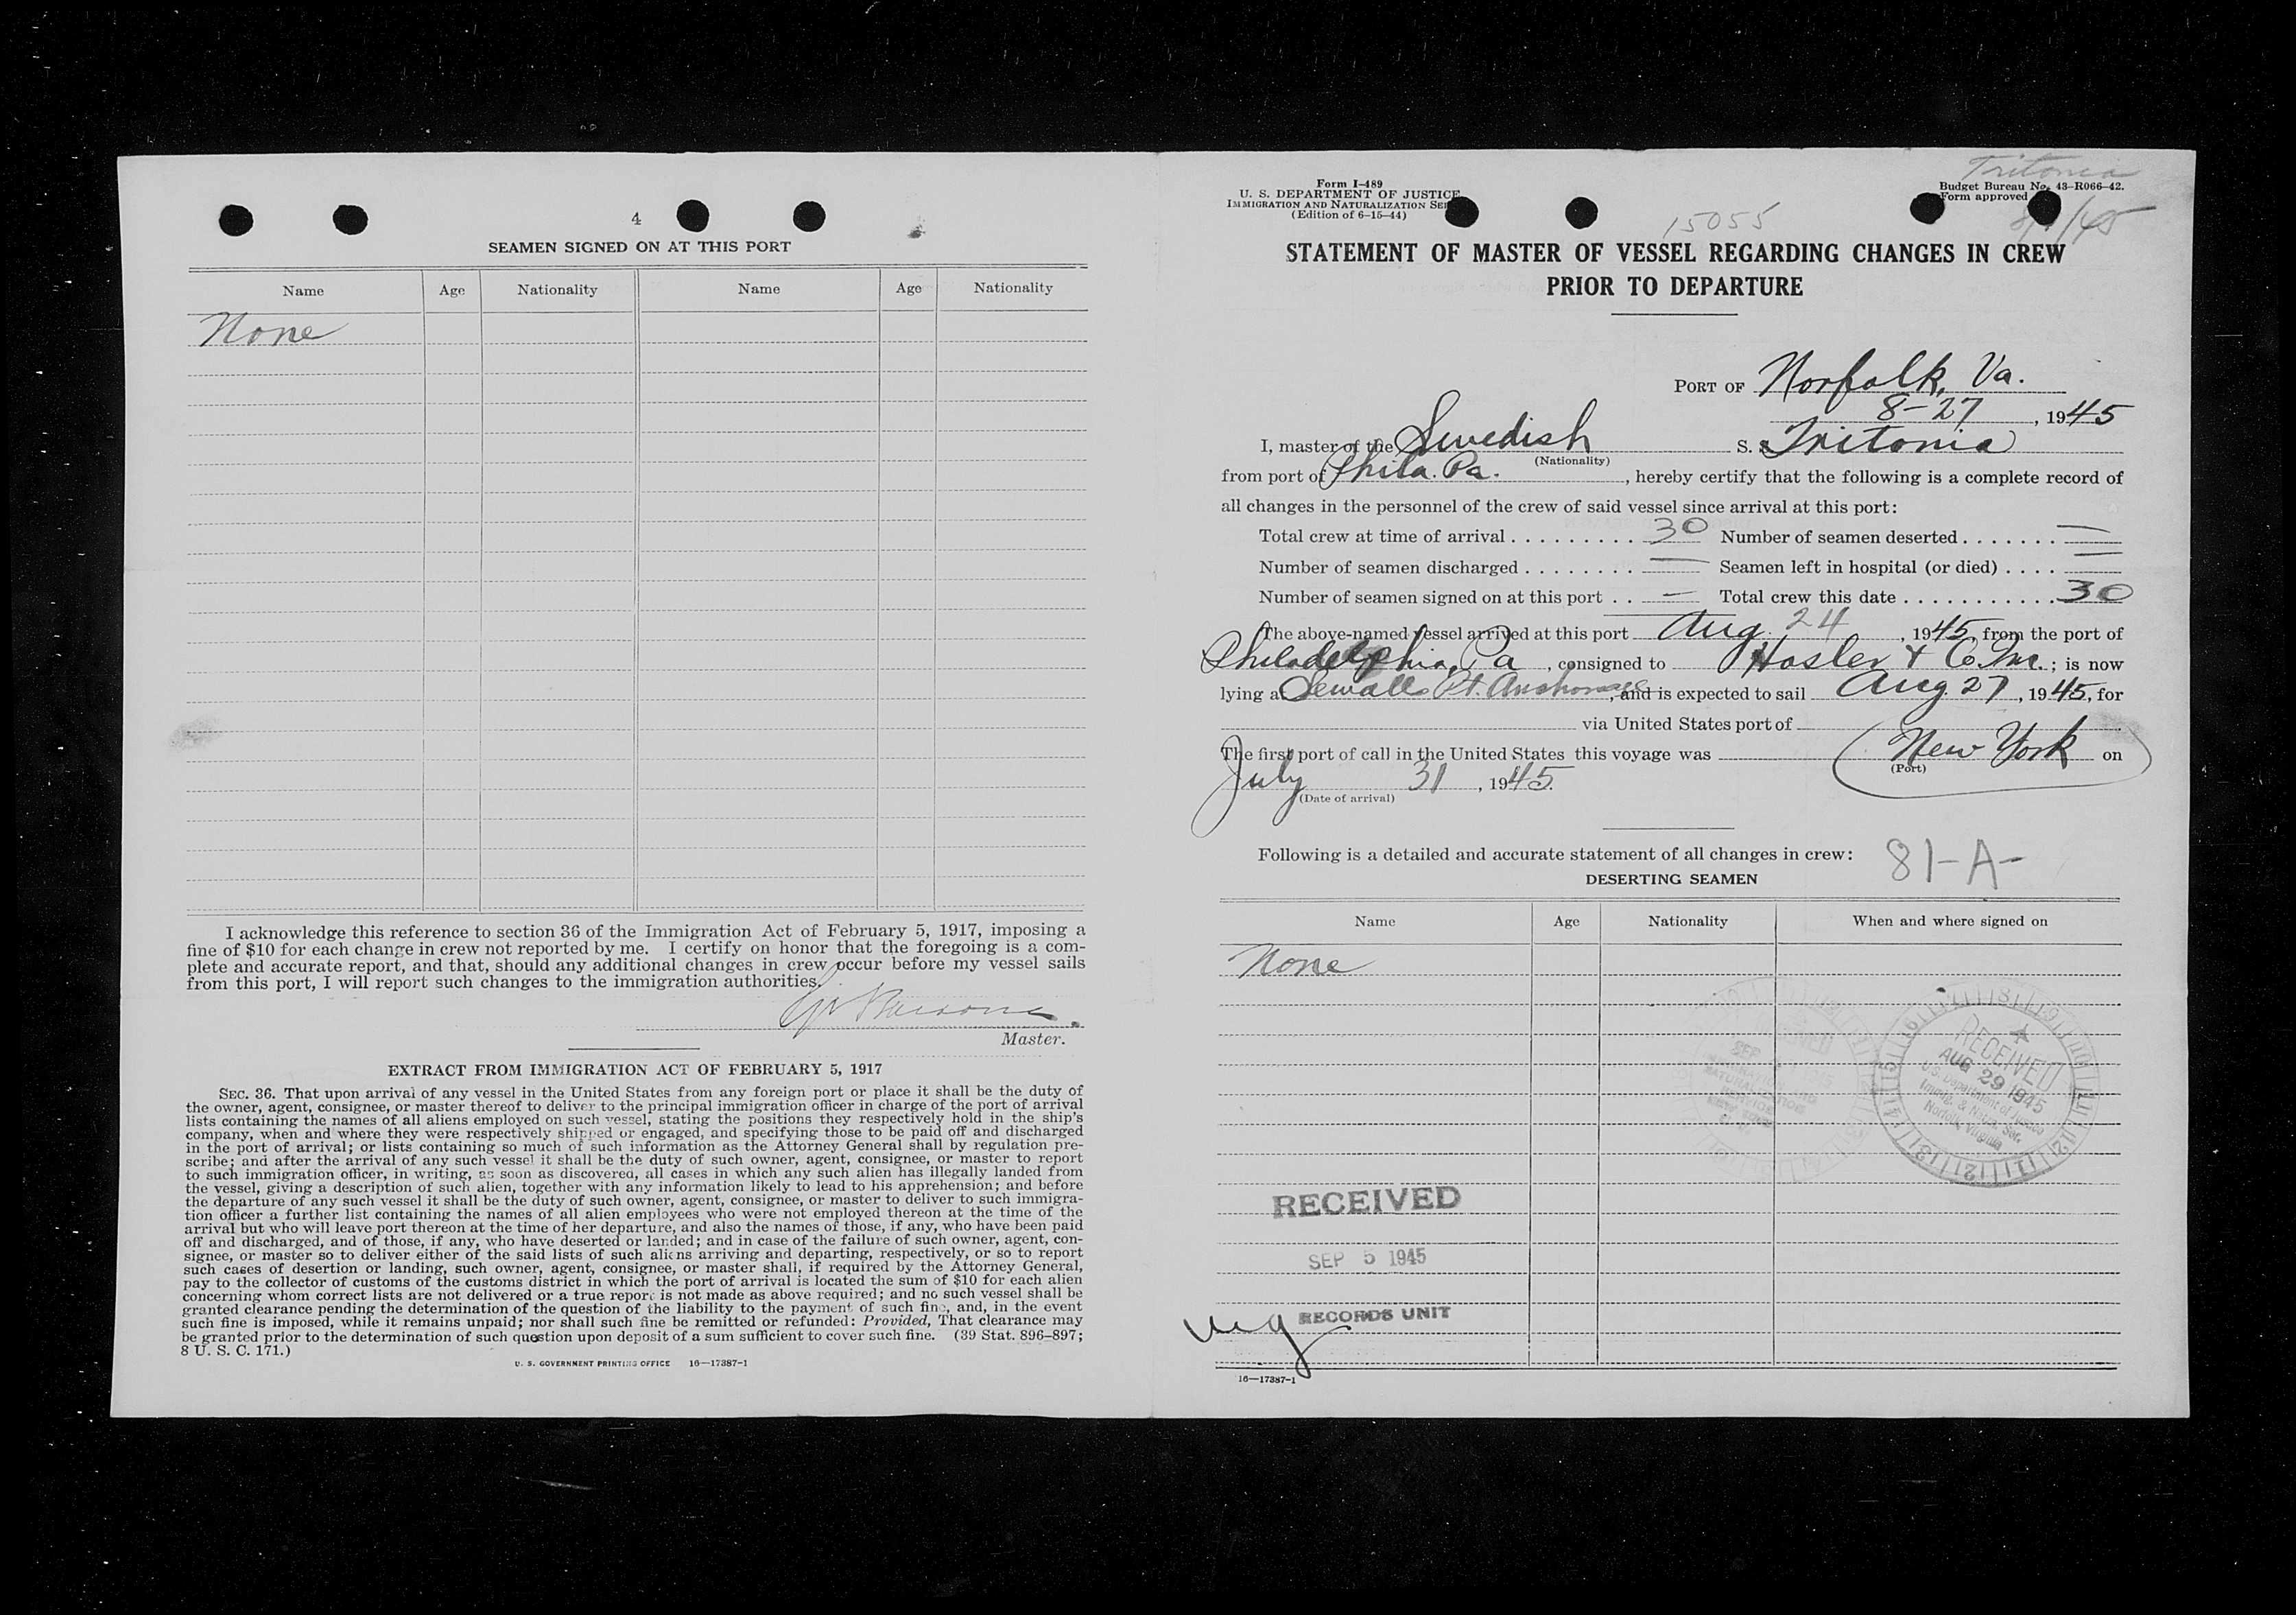 4
SEAMEN SIGNED ON AT THIS PORT
Name Age Nationality Name Age Nationality
None
I acknowledge this reference to section 36 of the Immigration Act of February 5, 1917, imposing a
fine of $10 for each change in crew not reported by me. I certify on honor that the foregoing is a com-
plete and accurate report, and that, should any additional changes in crew occur before my vessel sails
from this port, I will report such changes to the immigration authorities.
Master.
EXTRACT FROM IMMIGRATION ACT OF FEBRUARY 5, 1917
SEC. 36. That upon arrival of any vessel in the United States from any foreign port or place it shall be the duty of
the owner, agent, consignee, or master thereof to deliver to the principal immigration officer in charge of the port of arrival
lists containing the names of all aliens employed on such vessel, stating the positions they respectively hold in the ship's
company, when and where they were respectively shipped or engaged, and specifying those to be paid off and discharged
in the port of arrival; or lists containing so much of such information as the Attorney General shall by regulation pre-
scribe; and after the arrival of any such vessel it shall be the duty of such owner, agent, consignee, or master to report
to such immigration officer, in writing, as soon as discovered, all cases in which any such alien has illegally landed from
the vessel, giving a description of such alien, together with any information likely to lead to his apprehension; and before
the departure of any such vessel it shall be the duty of such owner, agent, consignee, or master to deliver to such immigra-
tion officer a further list containing the names of all alien employees who were not employed thereon at the time of the
arrival but who will leave port thereon at the time of her departure, and also the names of those, if any, who have been paid
off and discharged, and of those, if any, who have deserted or landed; and in case of the failure of such owner, agent, con-
signee, or master so to deliver either of the said lists of such aliens arriving and departing, respectively, or so to report
such cases of desertion or landing, such owner, agent, consignee, or master shall, if required by the Attorney General,
pay to the collector of customs of the customs district in which the port of arrival is located the sum of $10 for each alien
concerning whom correct lists are not delivered or a true report is not made as above required; and no such vessel shall be
granted clearance pending the determination of the question of the liability to the payment of such fine, and, in the event
such fine is imposed, while it remains unpaid; nor shall such fine be remitted or refunded: Provided, That clearance may
be granted prior to the determination of such question upon deposit of a sum sufficient to cover such fine. (39 Stat. 896–897;
8 U. S. C. 171.)
U. S. GOVERNMENT PRINTING OFFICE 16—17387-1
Tritonia
Form I-489
U. S. DEPARTMENT OF JUSTICE
IMMIGRATION AND NATURALIZATION
(Edition of 6-15-44)
Budget Bureau No. 43-R066-42.
Form approved
15055
STATEMENT OF MASTER OF VESSEL REGARDING CHANGES IN CREW
PRIOR TO DEPARTURE
PORT OF Norfolk, Va.
8-27, 1945
I, master of the Swedish S. S. Tritonia
(Nationality)
from port of Phila. Pa., hereby certify that the following is a complete record of
all changes in the personnel of the crew of said vessel since arrival at this port:
Total crew at time of arrival . . . . . . . . . 30 Number of seamen deserted . . . . . . . —
Number of seamen discharged . . . . . . . . — Seamen left in hospital (or died) . . . . —
Number of seamen signed on at this port . . — Total crew this date . . . . . . . . . . . 30
The above-named vessel arrived at this port Aug. 24, 1945, from the port of
Philadelphia, Pa, consigned to Hasler & Co. Inc.; is now
lying at Sewalls Pt. Anchorage, and is expected to sail Aug. 27, 1945, for
via United States port of
The first port of call in the United States this voyage was New York on
(Port)
July 31, 1945.
(Date of arrival)
Following is a detailed and accurate statement of all changes in crew: 81-A-
DESERTING SEAMEN
Name Age Nationality When and where signed on
None
RECEIVED
AUG 29 1945
U.S. Department of Justice
Immig. & Natzn. Ser.
Norfolk, Virginia
RECEIVED
SEP 5 1945
RECORDS UNIT
16—17387-1